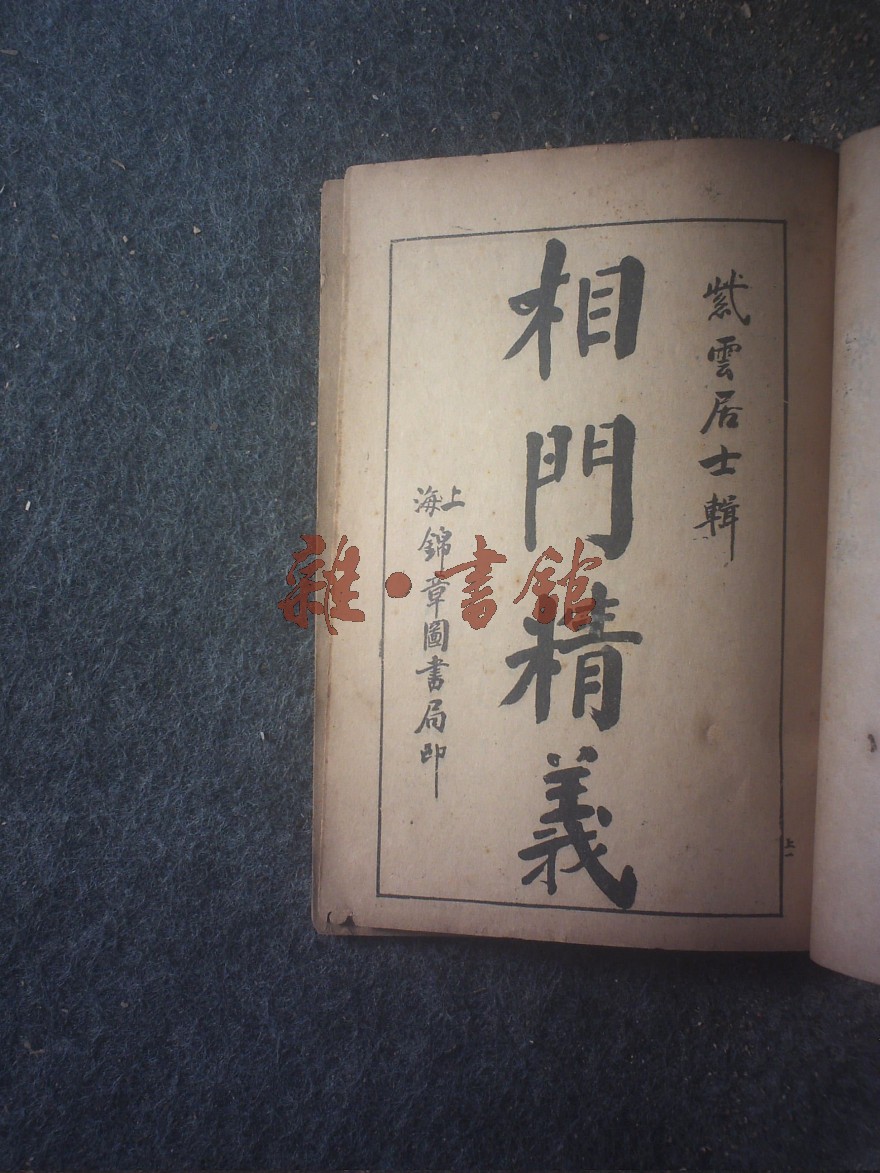 紫雲居士輯
相門精義
上海錦章圖書局印
上一
雜·書館